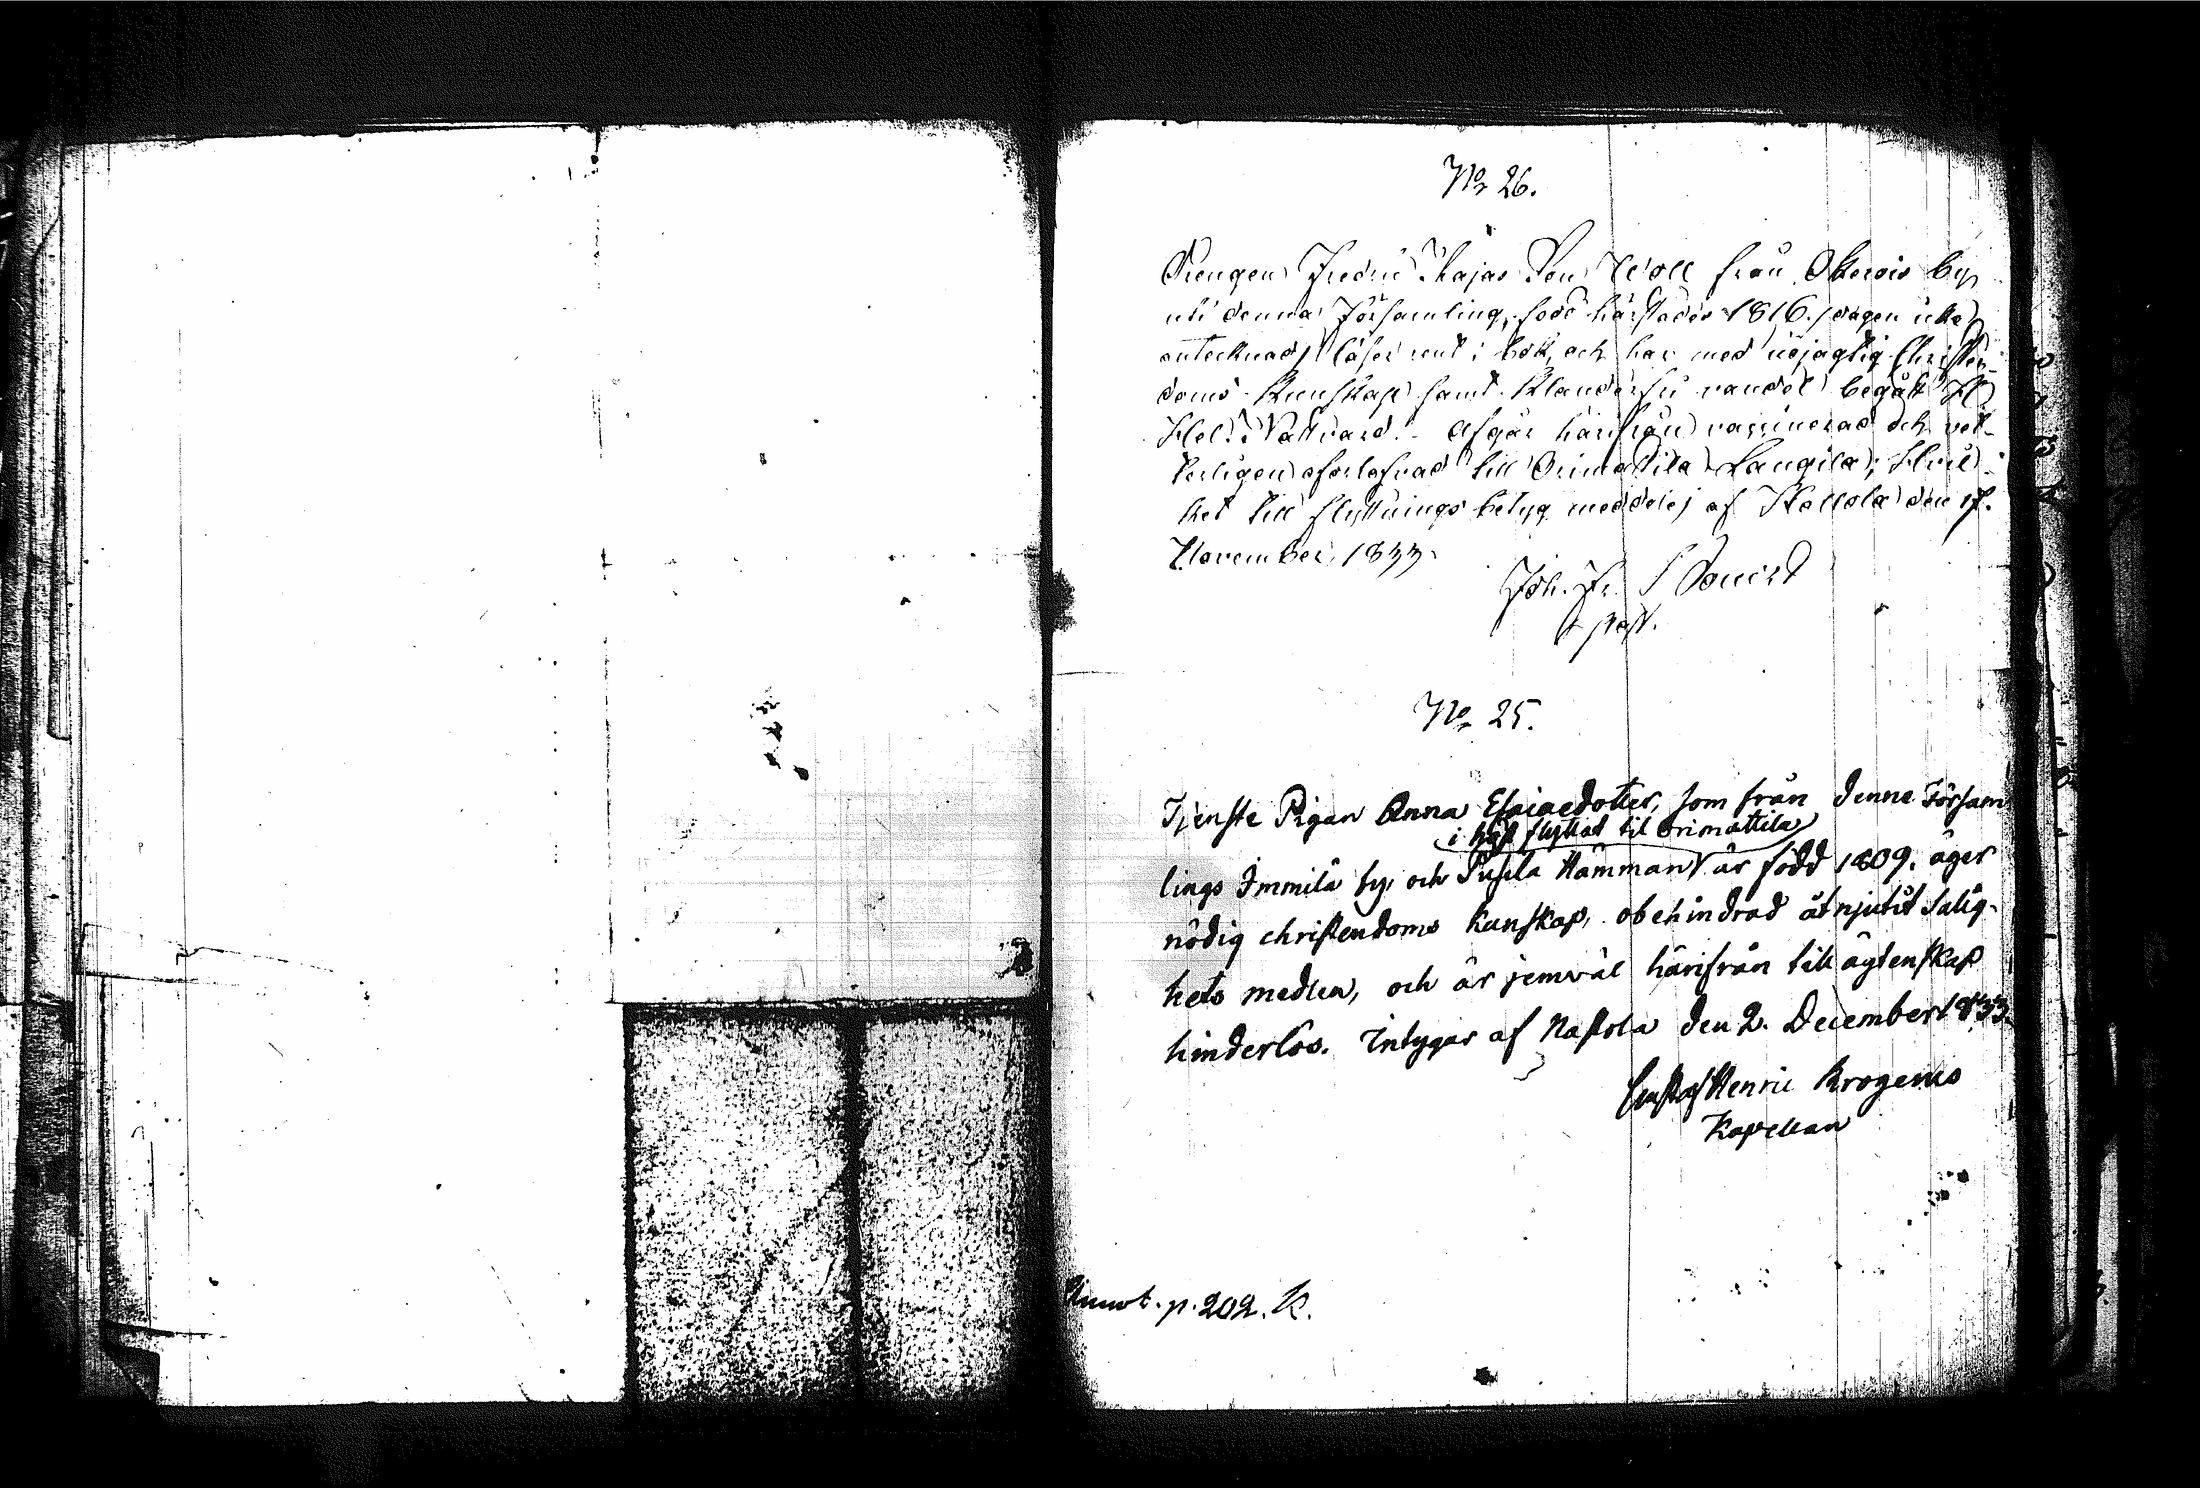 No 26.
Drengen Fredric Majas Son Woll från Okerois by
uti denna Församling, född härstädes 1816. /dagen icke
antecknad/ läser rent i bok, och har med nöjagtig Christen-
doms Kunskap samt Klanderfri vandel begått H
Hel: Nattvard. - Afgår härifrån vaccinerad och vet-
terligen oförlofvad till Orimattila Langila; Hvil-
ket till flyttnings betyg meddelas af Hollola den 17.
November 1833.
Joh. Fr.
past.
No 25.
Tjenste Pigan Anna Esaiaedotter, som från denne Försam
i höst flyttat til Orimattila
lings Immilä by, och Pusula Hämman är född 1809. äger
nödig christendoms kunskap, obehindrad åtnjutit Salig-
hets medlen, och är jemväl härifrån till ägtenskap
hinderlös. Intygar af Nastola den 2. December 1833.
Gustaf Henric Krogerus
Kapellan
p. 202. K.